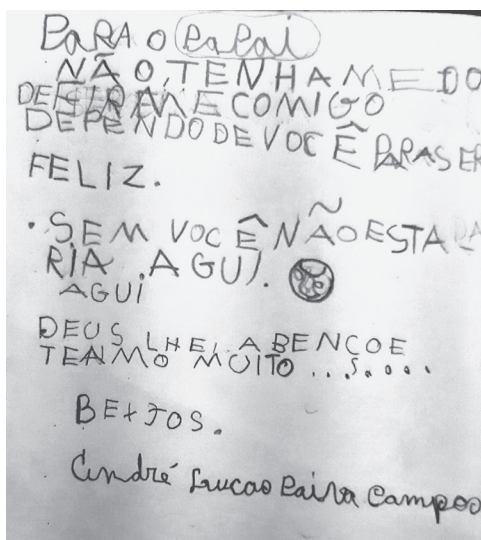 PARA O PaPai
NÃO, TENHA MEDO
DE FIRME COMIGO
DEPENDO DE VOCÊ PARA SER
FELIZ.
. SEM VOCÊ NÃO ESTA
RIA AGUI.
AGUI
DEUS LHE, ABENÇOE
TEAMO MUITO ...s....
BEIJOS.
André Lucas Paiva Campos